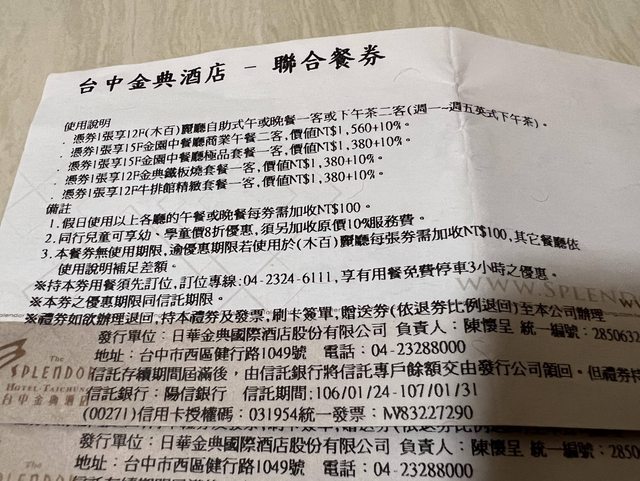 台中金典酒店 - 聯合餐券
使用說明
. 憑券1張享12F(木百)麗廳自助式午或晚餐一客或下午茶二客(週一~週五英式下午茶)。
. 憑券1張享15F金園中餐廳商業午餐二客,價值NT$1,560+10%。
. 憑券1張享15F金園中餐廳極品套餐一客,價值NT$1,380+10%。
. 憑券1張享12F金典鐵板燒套餐一客,價值NT$1,380+10%。
. 憑券1張享12F牛排館精緻套餐一客,價值NT$1,380+10%。
備註
1.假日使用以上各廳的午餐或晚餐每券需加收NT$100。
2.同行兒童可享幼、學童價8折優惠,須另加收原價10%服務費。
3.本餐券無使用期限,逾優惠期限若使用於(木百)麗廳每張券需加收NT$100,其它餐廳依
使用說明補足差額。
※持本券用餐須先訂位,訂位專線:04-2324-6111,享有用餐免費停車3小時之優惠。
※本券之優惠期限同信託期限。
WWW.SPLENDO
※禮券如欲辦理退回,持本禮券及發票,刷卡簽單,贈送券(依退券比例退回)至本公司辦理
發行單位:日華金典國際酒店股份有限公司 負責人:陳懷呈 統一編號:2850632
地址:台中市西區健行路1049號 電話:04-23288000
The
SPLENDOR
HOTEL-TAICHUNG
台中金典酒店
信託存續期間屆滿後,由信託銀行將信託專戶餘額交由發行公司領回。但禮券持
信託銀行:陽信銀行 信託期間:106/01/24-107/01/31
(00271)信用卡授權碼:031954統一發票:MV83227290
發行單位:日華金典國際酒店股份有限公司 負責人:陳懷呈 統一編號:2850
地址:台中市西區健行路1049號 電話:04-23288000
The